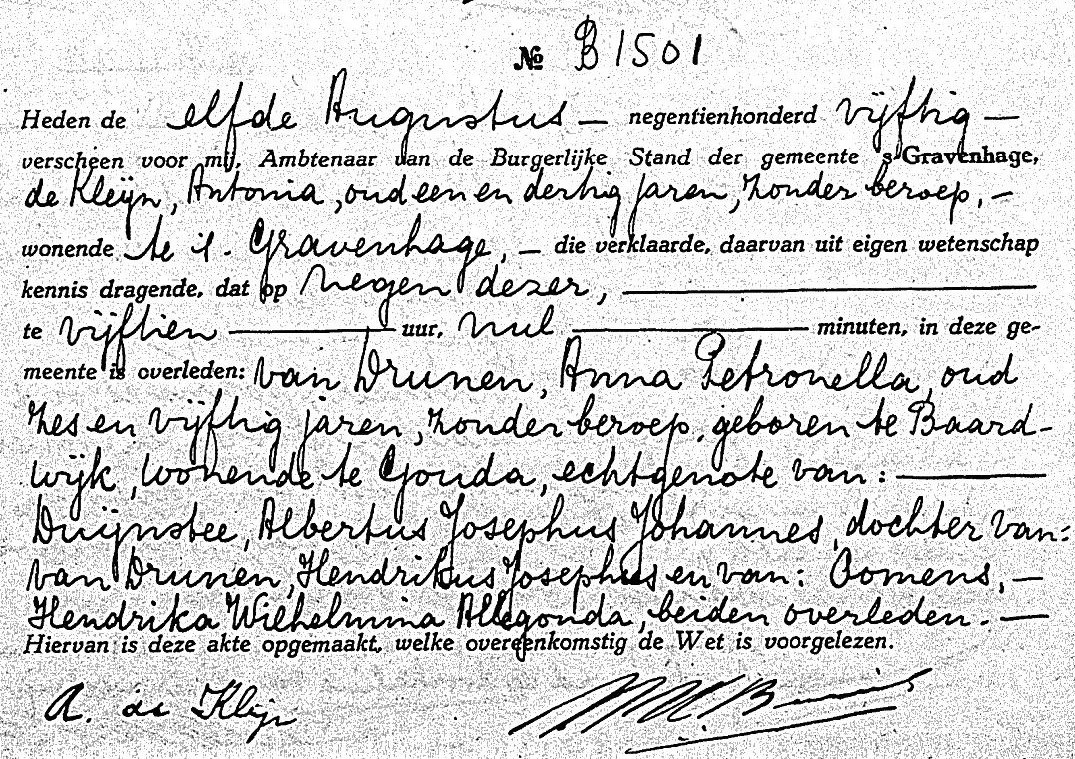 № B 1501
Heden de elfde Augustus — negentienhonderd vijftig —
verscheen voor mij, Ambtenaar van de Burgerlijke Stand der gemeente 's-Gravenhage,
de Kleijn, Antonia, oud een en dertig jaren, zonder beroep, —
wonende te 's-Gravenhage, — die verklaarde, daarvan uit eigen wetenschap
kennis dragende, dat op negen dezer, —
te vijftien — uur, nul — minuten, in deze ge-
meente is overleden: van Drunen, Anna Petronella, oud
zes en vijftig jaren, zonder beroep, geboren te Baard-
wijk, wonende te Gouda, echtgenote van: —
Duijnstee, Albertus Josephus Johannes, dochter van:
van Drunen, Hendrikus Josephus en van: Oomens, —
Hendrika Wilhelmina Allegonda, beiden overleden. —
Hiervan is deze akte opgemaakt, welke overeenkomstig de Wet is voorgelezen.
A. de Kleijn